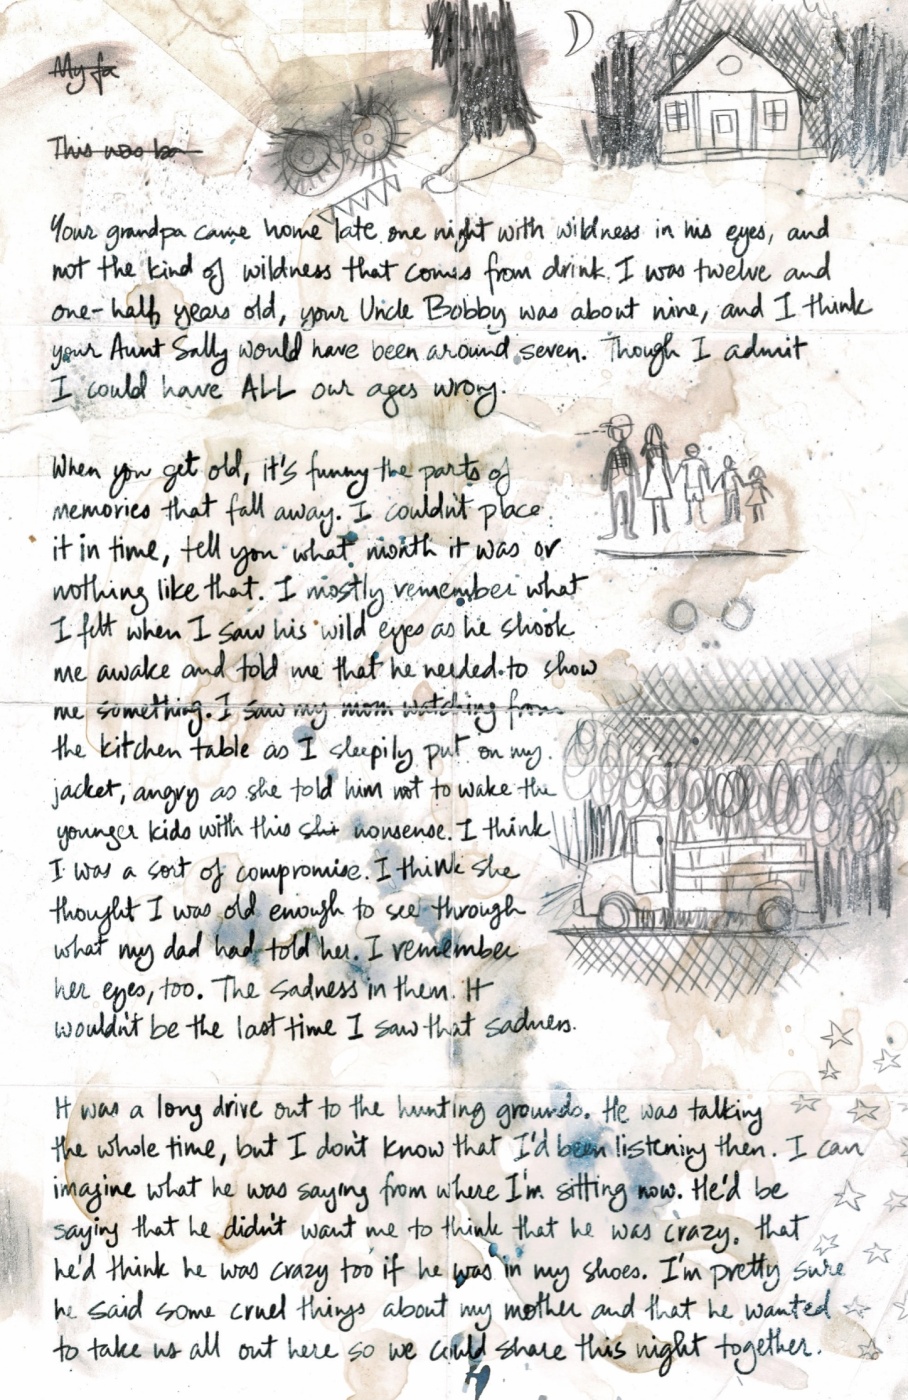 My fa
This was ba
Your grandpa came home late one night with wildness in his eyes, and
not the kind of wildness that comes from drink. I was twelve and
one-half years old, your Uncle Bobby was about nine, and I think
your Aunt Sally would have been around seven. Though I admit
I could have ALL our ages wrong.
When you get old, it's funny the parts of
memories that fall away. I couldn't place
it in time, tell you what month it was or
nothing like that. I mostly remember what
I felt when I saw his wild eyes as he shook
me awake and told me that he needed to show
me something. I saw my mom watching from
the kitchen table as I sleepily put on my
jacket, angry as she told him not to wake the
younger kids with this shit nonsense. I think
I was a sort of compromise. I think she
thought I was old enough to see through
what my dad had told her. I remember
her eyes, too. The sadness in them. It
wouldn't be the last time I saw that sadness.
It was a long drive out to the hunting grounds. He was talking
the whole time, but I don't know that I'd been listening then. I can
imagine what he was saying from where I'm sitting now. He'd be
saying that he didn't want me to think that he was crazy, that
he'd think he was crazy too if he was in my shoes. I'm pretty sure
he said some cruel things about my mother and that he wanted
to take us all out here so we could share this night together.